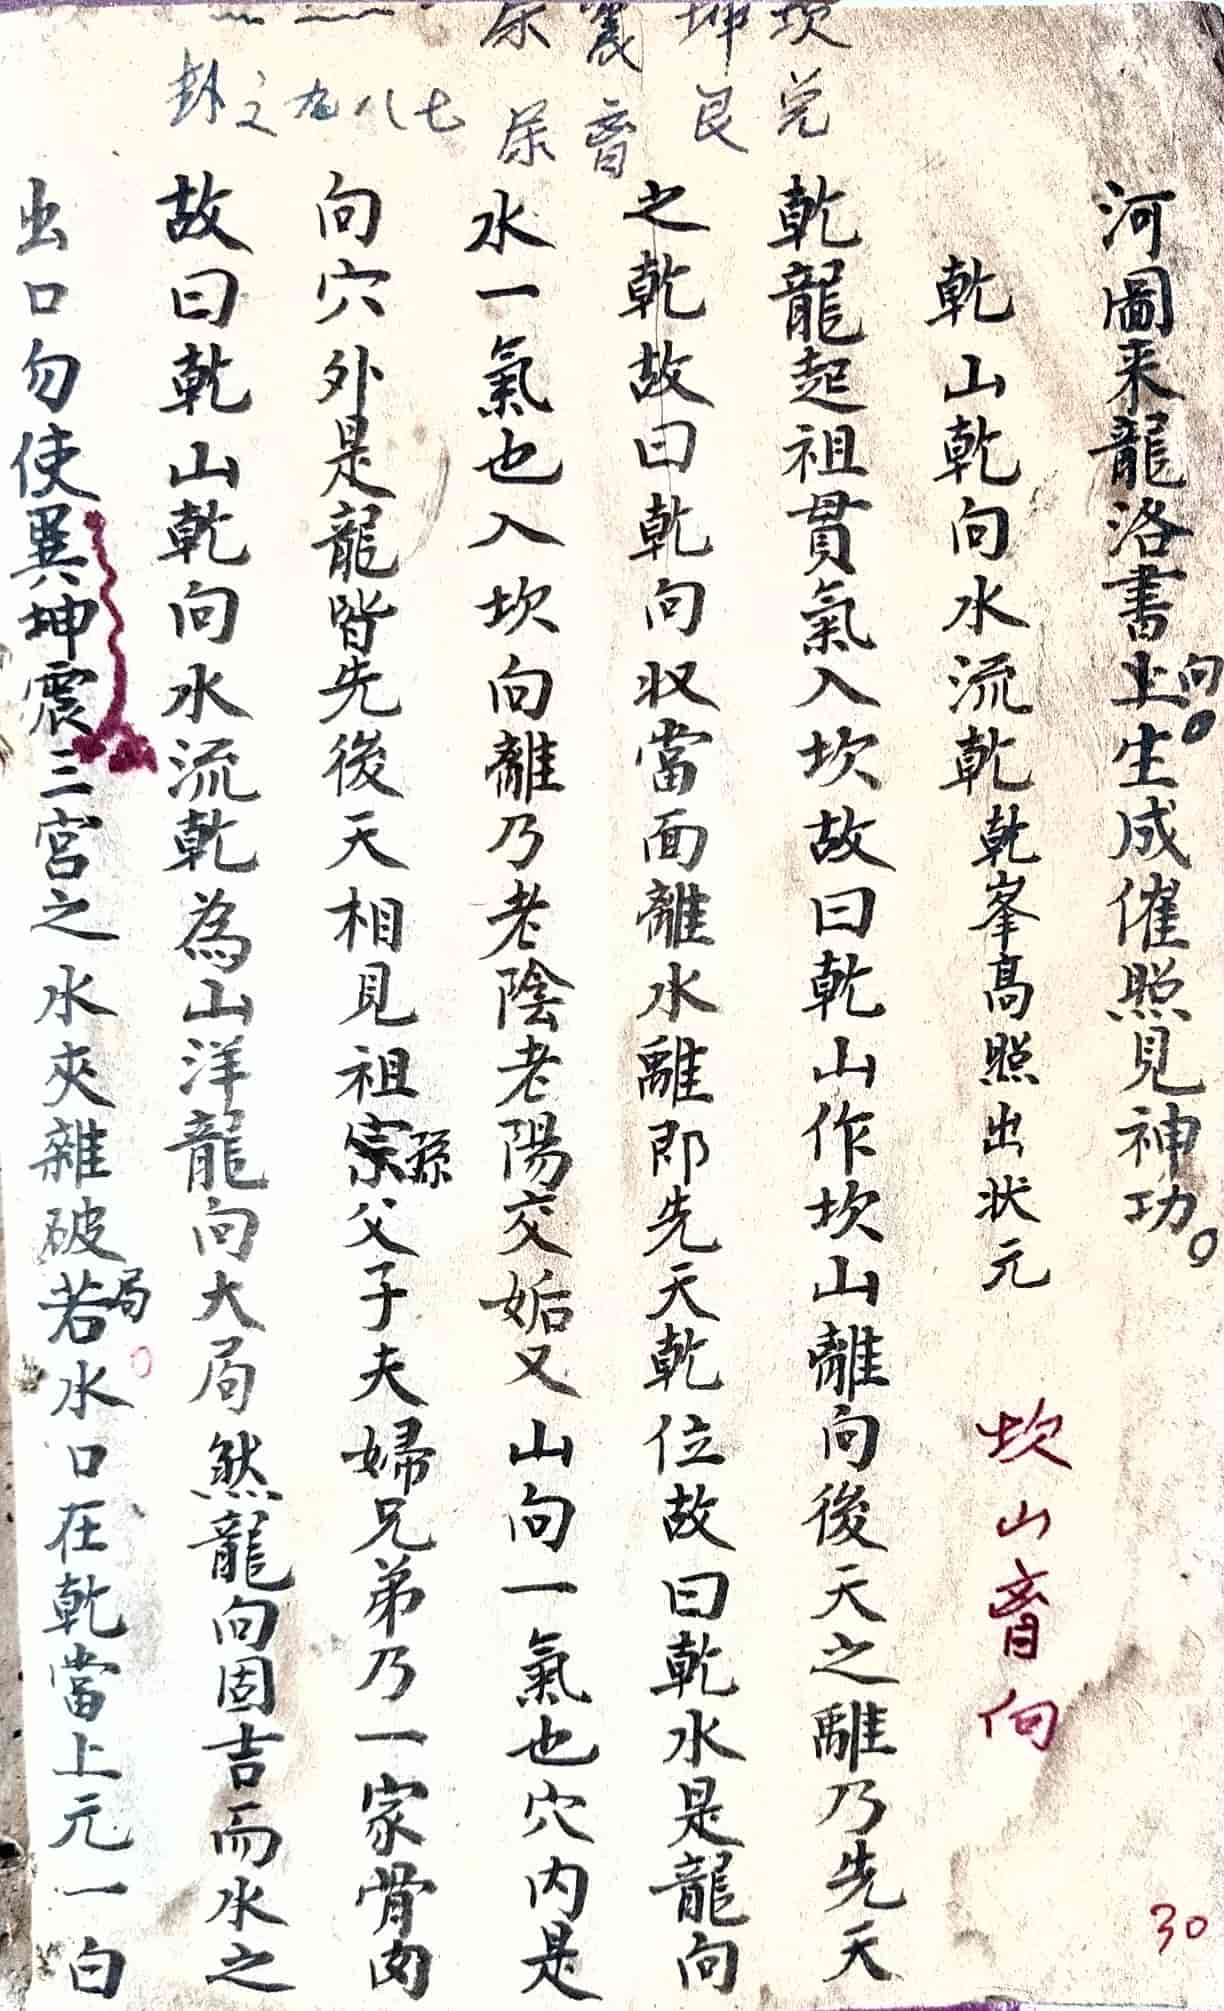 坎兌
坤艮
震
八七
河圖来龍洛書向上生成催照見神功
乾山乾向水流乾乾峯高照出状元
坎山向
乾龍起祖貫氣入坎故曰乾山作坎山離向後天之離乃先天
之乾故曰乾向收當面離水離即先天乾位故曰乾水是龍向
水一氣也入坎向離乃老陰老陽交姤又山向一氣也穴内是
向穴外是龍皆先後天相見祖宗孫父子夫婦兄弟乃一家骨肉
故曰乾山乾向水流乾為山洋龍向大局然龍向固吉而水之
出口勿使巽坤震三宮之水夾雜破局若水口在乾當上元一白
30